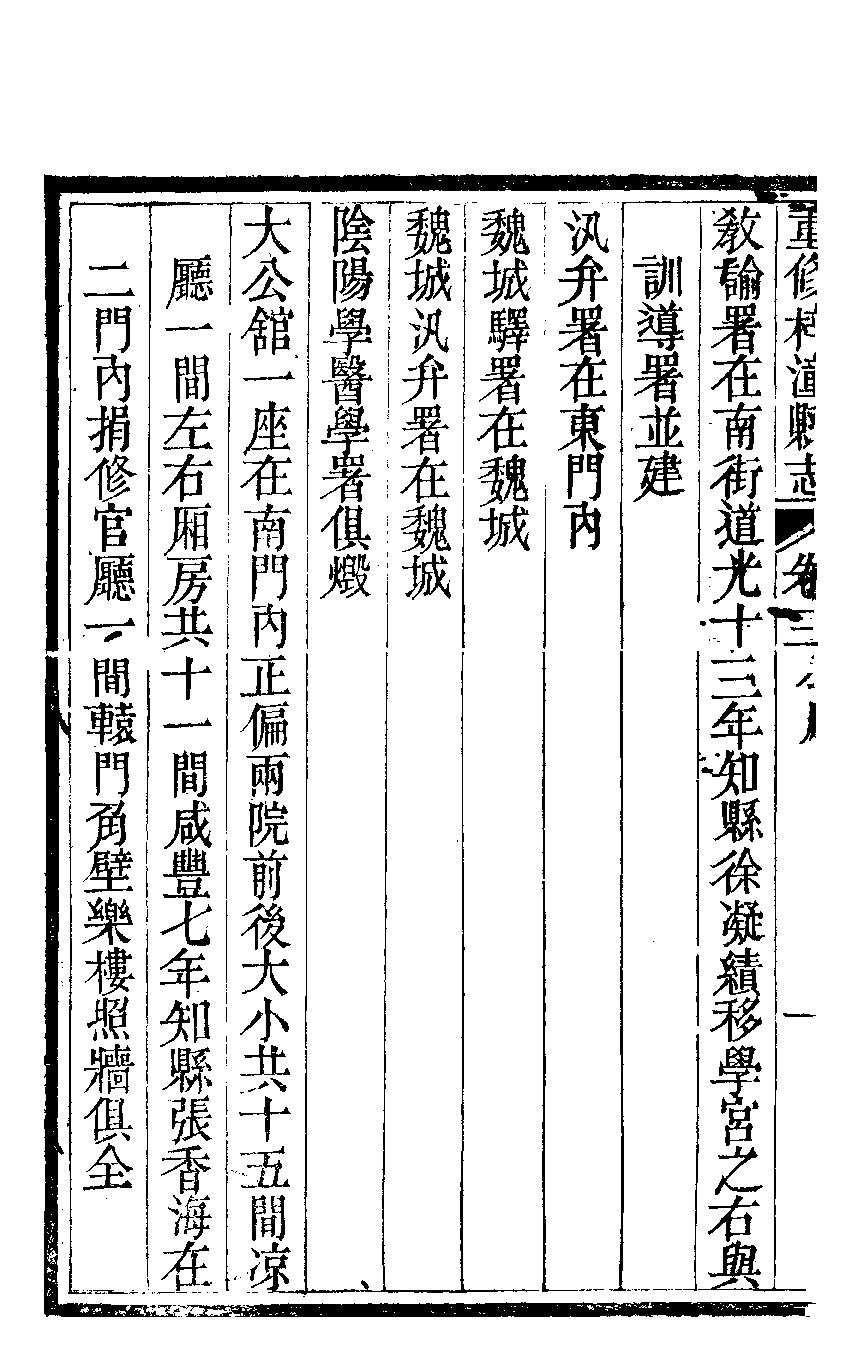 重修梓潼縣志 卷三
教諭署在南街道光十三年知縣徐凝績移學宮之右與
訓導署並建
汛弁署在東門內
魏城驛署在魏城
魏城汛弁署在魏城
陰陽學醫學署俱燬
大公舘一座在南門內正偏兩院前後大小共十五間凉
廳一間左右厢房共十一間咸豐七年知縣張香海在
二門內捐修官廳一間轅門角壁樂樓照牆俱全